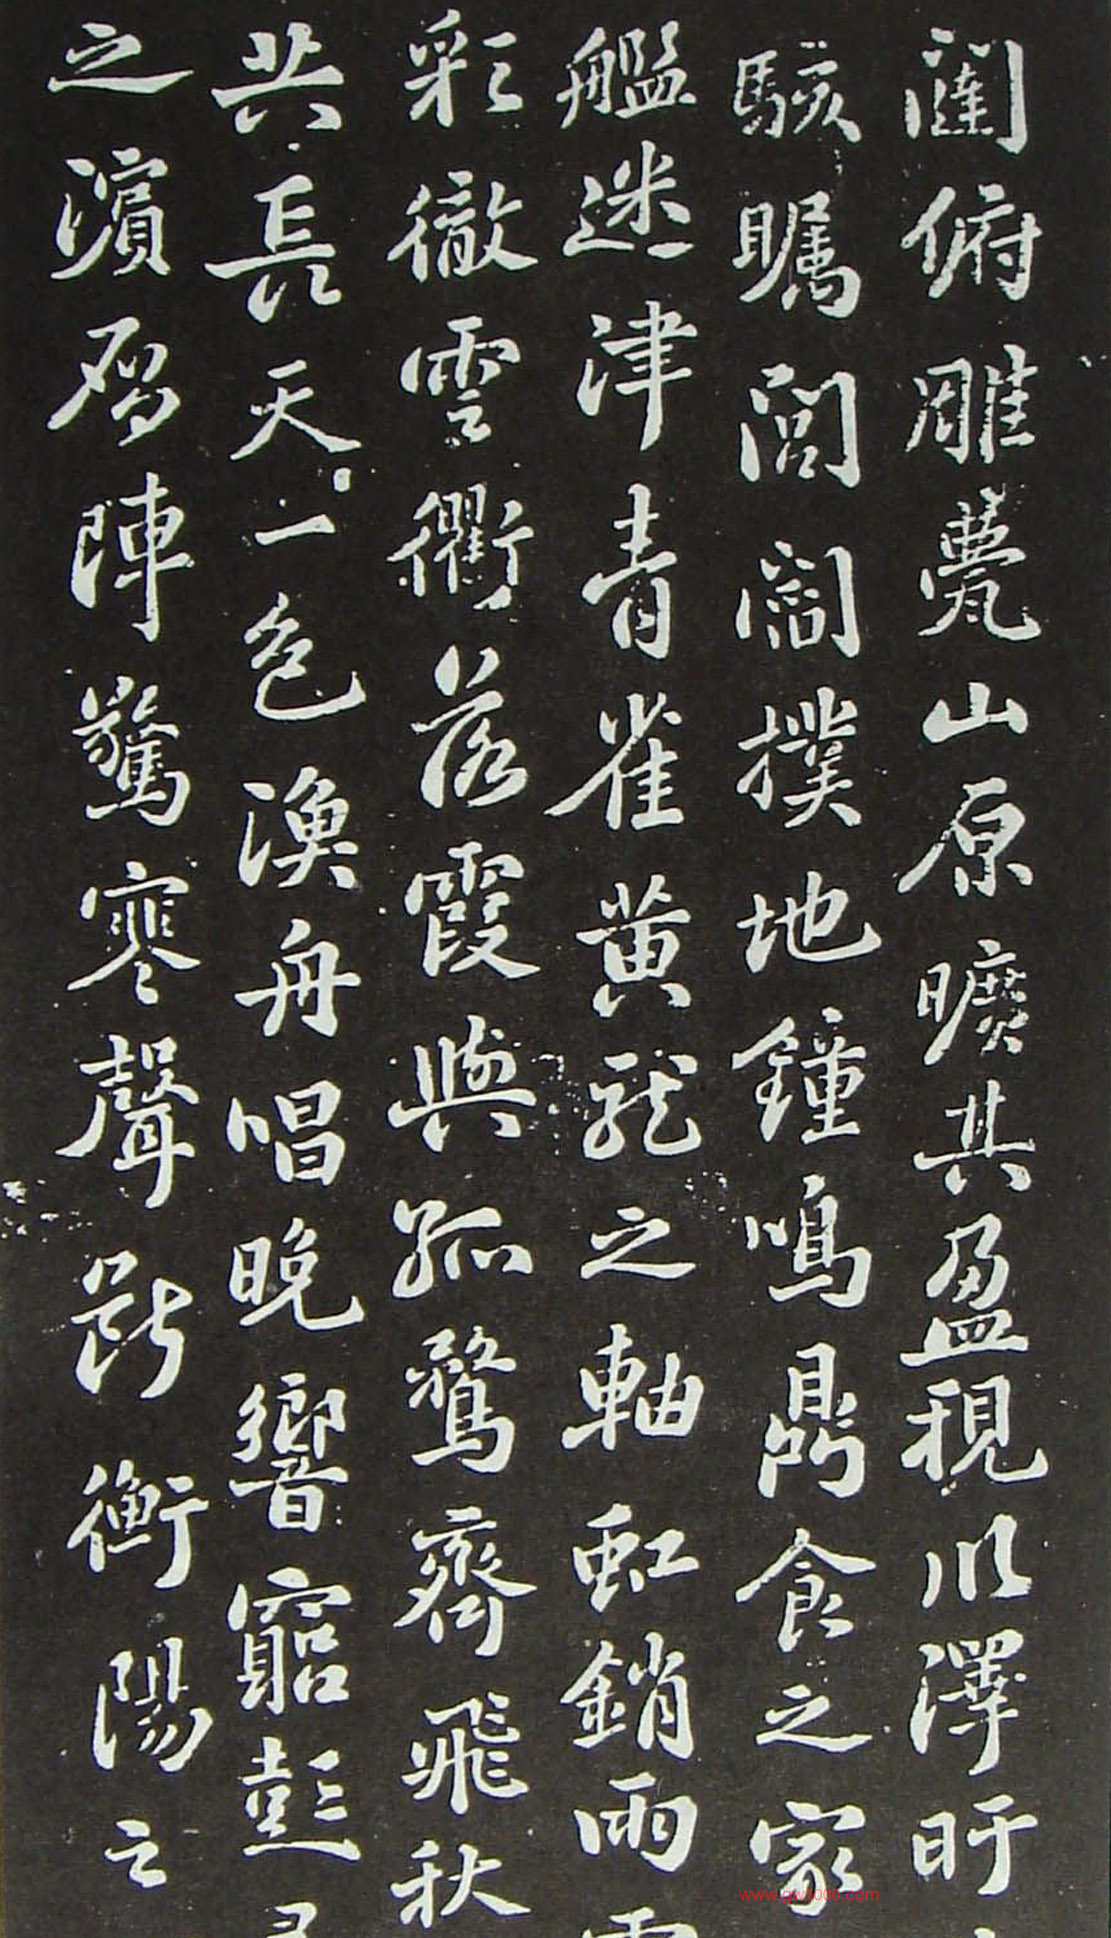 闥俯雕甍山原曠其盈視川澤盱
駭矚閭閻撲地鐘鳴鼎食之家
艦迷津青雀黃龍之軸虹銷雨
彩徹雲衢落霞與孤鶩齊飛秋
共長天一色漁舟唱晚響窮彭
之濱雁陣驚寒聲斷衡陽之